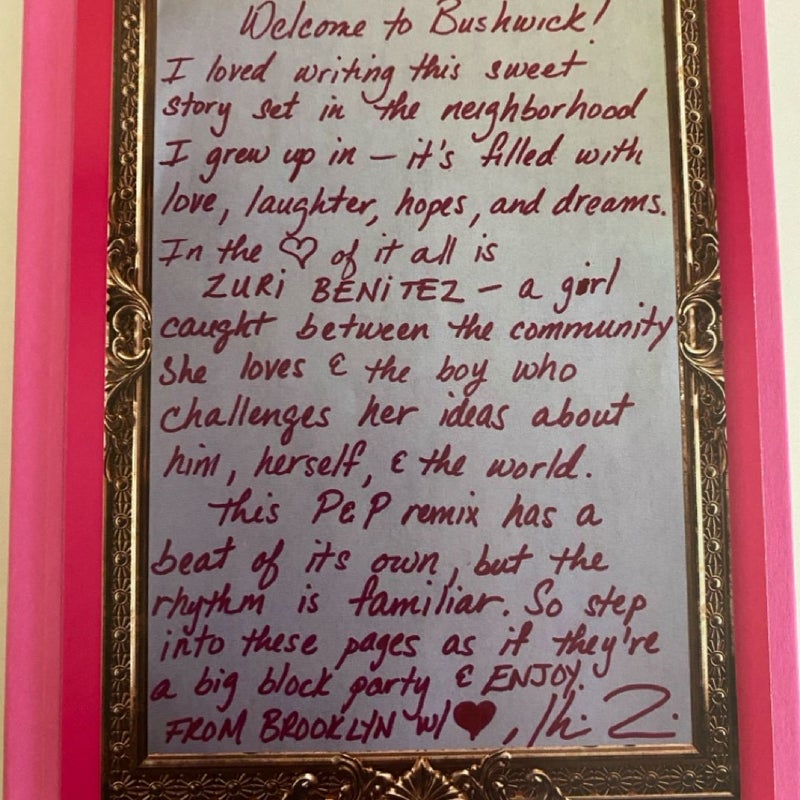 Welcome to Bushwick!
I loved writing this sweet
story set in the neighborhood
I grew up in – it's filled with
love, laughter, hopes, and dreams.
In the ♡ of it all is
ZURI BENITEZ – a girl
caught between the community
She loves & the boy who
challenges her ideas about
him, herself, & the world.
This P&P remix has a
beat of its own, but the
rhythm is familiar. So step
into these pages as if they're
a big block party & ENJOY.
FROM BROOKLYN W/ ♥,